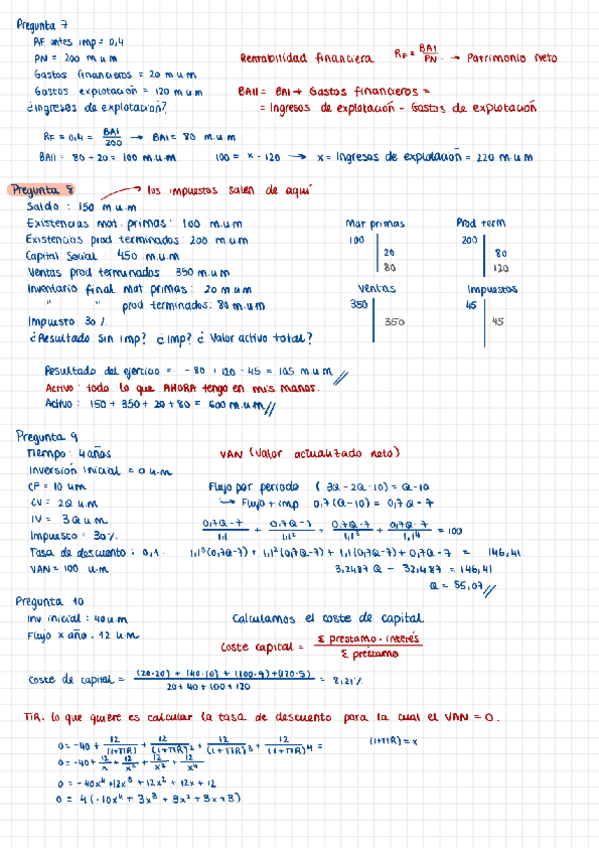 Pregunta 7
RF antes imp = 0,4
PN = 200 m u m
Gastos financieros = 20 m u m
Gastos explotación = 120 m u m
¿Ingresos de explotación?
Rentabilidad financiera RF = BAI / PN → Patrimonio neto
BAII = BAI + Gastos financieros =
= Ingresos de explotación - Gastos de explotación
RF = 0,4 = BAI / 200 → BAI = 80 m.u.m
BAII = 80 + 20 = 100 m.u.m 100 = x - 120 → x = Ingresos de explotación = 220 m.u.m
Pregunta 8 → los impuestos salen de aquí
Saldo : 150 m u m
Existencias mat. primas : 100 m.u.m
Existencias prod terminados : 200 m.u.m
Capital Social : 450 m.u.m
Ventas prod terminados 350 m.u.m
Inventario final mat primas : 20 m u m
" " prod terminados: 80 m.u.m
Impuesto 30 %
¿Resultado sin imp? ¿Imp? ¿Valor activo total?
Mat primas Prod term
100 200
20 80
80 120
Ventas Impuestos
350 45
350 45
Resultado del ejercicio = - 80 + 120 - 45 = 105 m u m
Activo : todo lo que AHORA tengo en mis manos.
Activo : 150 + 350 + 20 + 80 = 600 m.u.m
Pregunta 9
Tiempo : 4 años
Inversión inicial = 0 u.m
CF = 10 um
CV = 2Q u.m
IV = 3Q u m
Impuesto : 30%
Tasa de descuento : 0,1
VAN = 100 u.m
VAN (Valor actualizado neto)
Flujo por periodo (3Q - 2Q - 10) = Q - 10
→ Flujo + imp 0,7(Q-10) = 0,7Q - 7
0,7Q-7 / 1,1 + 0,7Q-7 / 1,1² + 0,7Q-7 / 1,1³ + 0,7Q-7 / 1,1⁴ = 100
1,1³(0,7Q-7) + 1,1²(0,7Q-7) + 1,1(0,7Q-7) + 0,7Q - 7 = 146,41
3,2487Q - 32,487 = 146,41
Q = 55,07
Pregunta 10
Inv inicial : 40 u m
Flujo x año : 12 u m
Calculamos el coste de capital
Coste capital = Σ préstamo · interés / Σ préstamo
Coste de capital = (20·20) + (40·10) + (100·9) + (120·5) / 20 + 40 + 100 + 120 = 8,21%
TIR: lo que quiere es calcular la tasa de descuento para la cual el VAN = 0.
0 = -40 + 12 / (1+TIR) + 12 / (1+TIR)² + 12 / (1+TIR)³ + 12 / (1+TIR)⁴ = (1+TIR) = x
0 = -40 + 12/x + 12/x² + 12/x³ + 12/x⁴
0 = -40x⁴ + 12x³ + 12x² + 12x + 12
0 = 4(-10x⁴ + 3x³ + 3x² + 3x + 3)